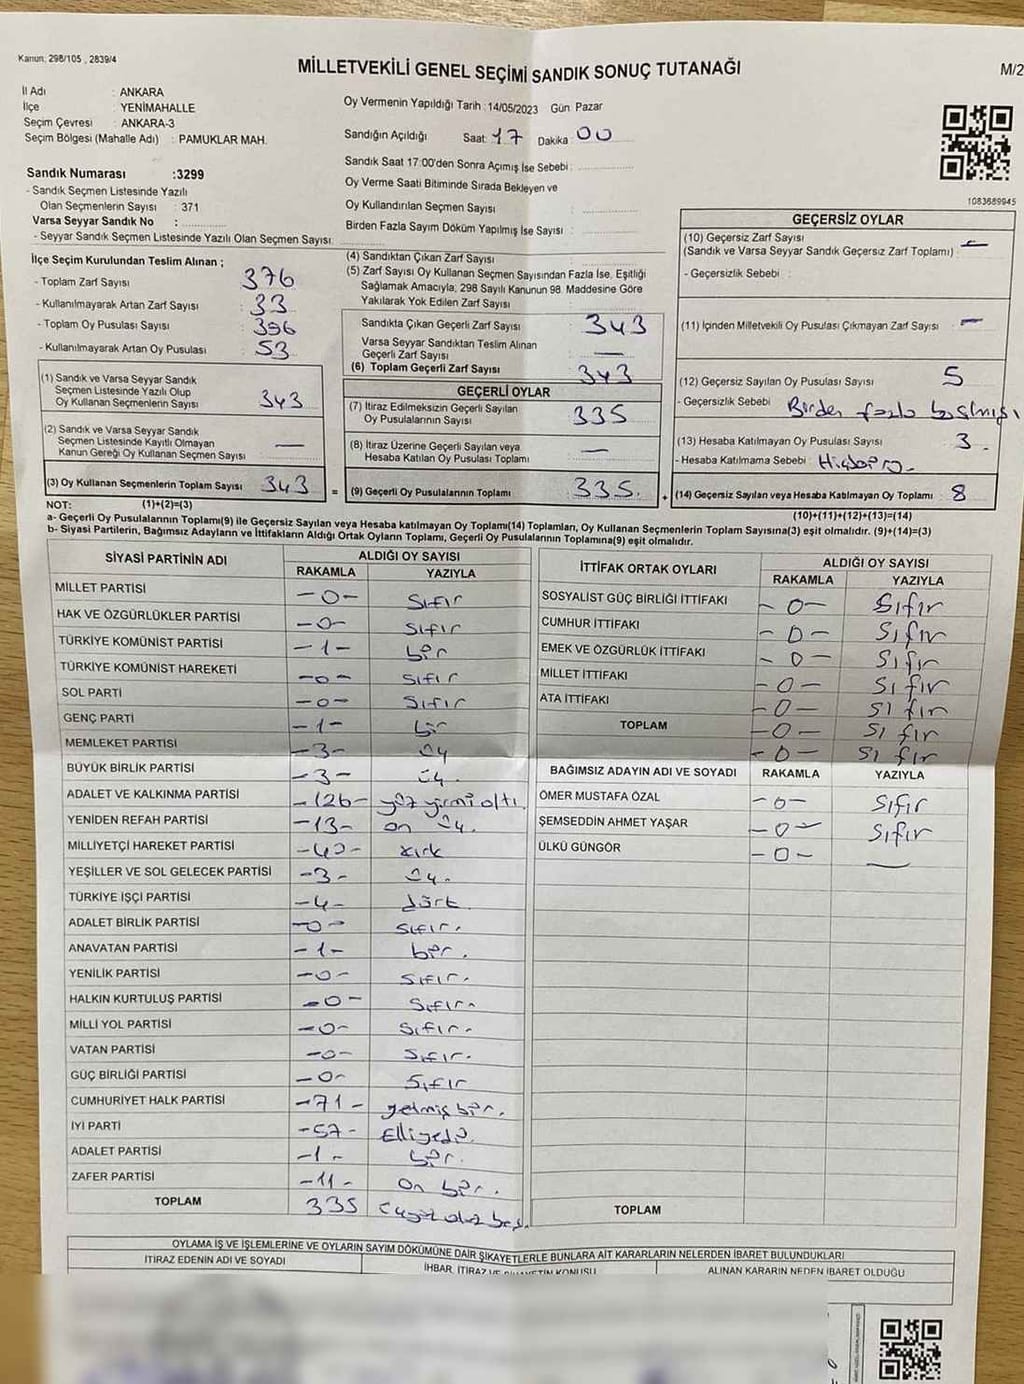 Kanun; 298/105 , 2839/4
MİLLETVEKİLİ GENEL SEÇİMİ SANDIK SONUÇ TUTANAĞI
M/2
İl Adı : ANKARA
İlçe : YENİMAHALLE
Seçim Çevresi : ANKARA-3
Seçim Bölgesi (Mahalle Adı) : PAMUKLAR MAH.
Sandık Numarası :3299
- Sandık Seçmen Listesinde Yazılı
Olan Seçmenlerin Sayısı : 371
Varsa Seyyar Sandık No :
- Seyyar Sandık Seçmen Listesinde Yazılı Olan Seçmen Sayısı:
İlçe Seçim Kurulundan Teslim Alınan ;
- Toplam Zarf Sayısı : 376
- Kullanılmayarak Artan Zarf Sayısı : 33
- Toplam Oy Pusulası Sayısı : 396
- Kullanılmayarak Artan Oy Pusulası : 53
(1) Sandık ve Varsa Seyyar Sandık
Seçmen Listesinde Yazılı Olup
Oy Kullanan Seçmenlerin Sayısı : 343
(2) Sandık ve Varsa Seyyar Sandık
Seçmen Listesinde Kayıtlı Olmayan
Kanun Gereği Oy Kullanan Seçmen Sayısı : —
(3) Oy Kullanan Seçmenlerin Toplam Sayısı : 343
Oy Vermenin Yapıldığı Tarih : 14/05/2023 Gün: Pazar
Sandığın Açıldığı Saat: 17 Dakika : 00
Sandık Saat 17:00'den Sonra Açımış İse Sebebi :
Oy Verme Saati Bitiminde Sırada Bekleyen ve
Oy Kullandırılan Seçmen Sayısı :
Birden Fazla Sayım Döküm Yapılmış İse Sayısı :
(4) Sandıktan Çıkan Zarf Sayısı :
(5) Zarf Sayısı Oy Kullanan Seçmen Sayısından Fazla İse, Eşitliği
Sağlamak Amacıyla; 298 Sayılı Kanunun 98. Maddesine Göre
Yakılarak Yok Edilen Zarf Sayısı :
Sandıkta Çıkan Geçerli Zarf Sayısı : 343
Varsa Seyyar Sandıktan Teslim Alınan
Geçerli Zarf Sayısı : —
(6) Toplam Geçerli Zarf Sayısı : 343
GEÇERLİ OYLAR
(7) İtiraz Edilmeksizin Geçerli Sayılan
Oy Pusulalarının Sayısı : 335
(8) İtiraz Üzerine Geçerli Sayılan veya
Hesaba Katılan Oy Pusulası Toplamı : —
= (9) Geçerli Oy Pusulalarının Toplamı : 335.
1083689945
GEÇERSİZ OYLAR
(10) Geçersiz Zarf Sayısı
(Sandık ve Varsa Seyyar Sandık Geçersiz Zarf Toplamı) : —
- Geçersizlik Sebebi :
(11) İçinden Milletvekili Oy Pusulası Çıkmayan Zarf Sayısı : —
(12) Geçersiz Sayılan Oy Pusulası Sayısı : 5
- Geçersizlik Sebebi : Birden fazla basılmış
(13) Hesaba Katılmayan Oy Pusulası Sayısı : 3.
- Hesaba Katılmama Sebebi :
+ (14) Geçersiz Sayılan veya Hesaba Katılmayan Oy Toplamı : 8
NOT: (1)+(2)=(3)
(10)+(11)+(12)+(13)=(14)
a- Geçerli Oy Pusulalarının Toplamı(9) ile Geçersiz Sayılan veya Hesaba katılmayan Oy Toplamı(14) Toplamları, Oy Kullanan Seçmenlerin Toplam Sayısına(3) eşit olmalıdır. (9)+(14)=(3)
b- Siyasi Partilerin, Bağımsız Adayların ve İttifakların Aldığı Ortak Oyların Toplamı, Geçerli Oy Pusulalarının Toplamına(9) eşit olmalıdır.
SİYASİ PARTİNİN ADI
ALDIĞI OY SAYISI
RAKAMLA YAZIYLA
MİLLET PARTİSİ -0- Sıfır
HAK VE ÖZGÜRLÜKLER PARTİSİ -0- Sıfır
TÜRKİYE KOMÜNİST PARTİSİ -1- bir
TÜRKİYE KOMÜNİST HAREKETİ -0- Sıfır
SOL PARTİ -0- Sıfır
GENÇ PARTİ -1- bir
MEMLEKET PARTİSİ -3- üç
BÜYÜK BİRLİK PARTİSİ -3- üç.
ADALET VE KALKINMA PARTİSİ -126- yüz yirmi altı
YENİDEN REFAH PARTİSİ -13- on üç.
MİLLİYETÇİ HAREKET PARTİSİ -40- kırk
YEŞİLLER VE SOL GELECEK PARTİSİ -3- üç.
TÜRKİYE İŞÇİ PARTİSİ -4- dört
ADALET BİRLİK PARTİSİ -0- Sıfır.
ANAVATAN PARTİSİ -1- bir.
YENİLİK PARTİSİ -0- Sıfır.
HALKIN KURTULUŞ PARTİSİ -0- Sıfır.
MİLLİ YOL PARTİSİ -0- Sıfır.
VATAN PARTİSİ -0- Sıfır.
GÜÇ BİRLİĞİ PARTİSİ -0- Sıfır
CUMHURİYET HALK PARTİSİ -71- yetmiş bir.
İYİ PARTİ -57- Elli yedi.
ADALET PARTİSİ -1- bir.
ZAFER PARTİSİ -11- On bir.
TOPLAM 335 üçyüz otuz beş.
İTTİFAK ORTAK OYLARI
ALDIĞI OY SAYISI
RAKAMLA YAZIYLA
SOSYALİST GÜÇ BİRLİĞİ İTTİFAKI -0- Sıfır
CUMHUR İTTİFAKI -0- Sıfır
EMEK VE ÖZGÜRLÜK İTTİFAKI -0- Sıfır
MİLLET İTTİFAKI -0- Sıfır
ATA İTTİFAKI -0- Sıfır
TOPLAM -0- Sıfır
-0- Sıfır
BAĞIMSIZ ADAYIN ADI VE SOYADI RAKAMLA YAZIYLA
ÖMER MUSTAFA ÖZAL -0- Sıfır
ŞEMSEDDİN AHMET YAŞAR -0- Sıfır
ÜLKÜ GÜNGÖR -0- —
TOPLAM
OYLAMA İŞ VE İŞLEMLERİNE VE OYLARIN SAYIM DÖKÜMÜNE DAİR ŞİKAYETLERLE BUNLARA AİT KARARLARIN NELERDEN İBARET BULUNDUKLARI
İTİRAZ EDENİN ADI VE SOYADI
İHBAR, İTİRAZ VE ŞİKAYETİN KONUSU
ALINAN KARARIN NEDEN İBARET OLDUĞU